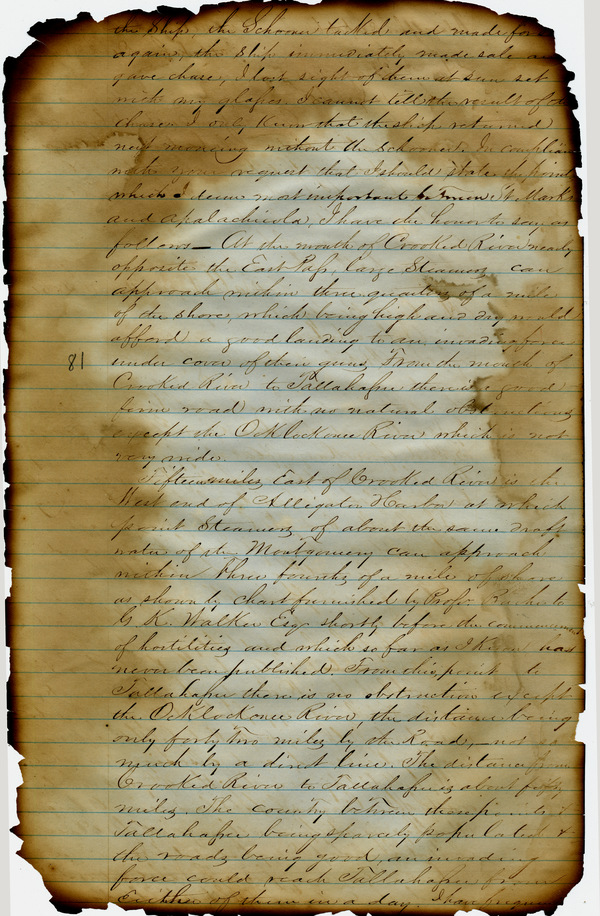 the Ship, the Schooner tacked and made for
again, the Ship immediately made sale an
gave chase, I lost sight of them at sun set
with my glasses. I cannot tell the result of the
chase. I only know that the ship returned
next morning without the Schooner. In complian
with your request that I should state the point
which I deem most important between St. Marks
and Apalachicola, I have the honor to say as
follows — At the mouth of Crooked River nearly
opposite the East Pass, large Steamers can
approach within three quarters of a mile
of the shore, which being high and dry would
afford a good landing to an invading force
under cover of their guns. From the mouth of
81
Crooked River to Tallahassee there is a good
firm road with no natural obstructions
except the Ocklockonee River which is not
very wide.
Fifteen miles East of Crooked River is the
West end of Alligator Harbor at which
point Steamers of about the same draft
water of the Montgomery can approach
within three fourths of a mile of shore
as shown by chart furnished by Profr. to
G. K. Walker Esq shortly before the commencement
of hostilities and which so far as I know has
never been published. From this point to
Tallahassee there is no obstruction except
the Ocklockonee River, the distance being
only forty two miles by the Road, — not so
much by a direct line. The distance from
Crooked River to Tallahassee is about fifty
miles. The country between these points &
Tallahassee being sparcely populated &
the roads being good, an invading
force could reach Tallahassee from
Either of them in a day. I